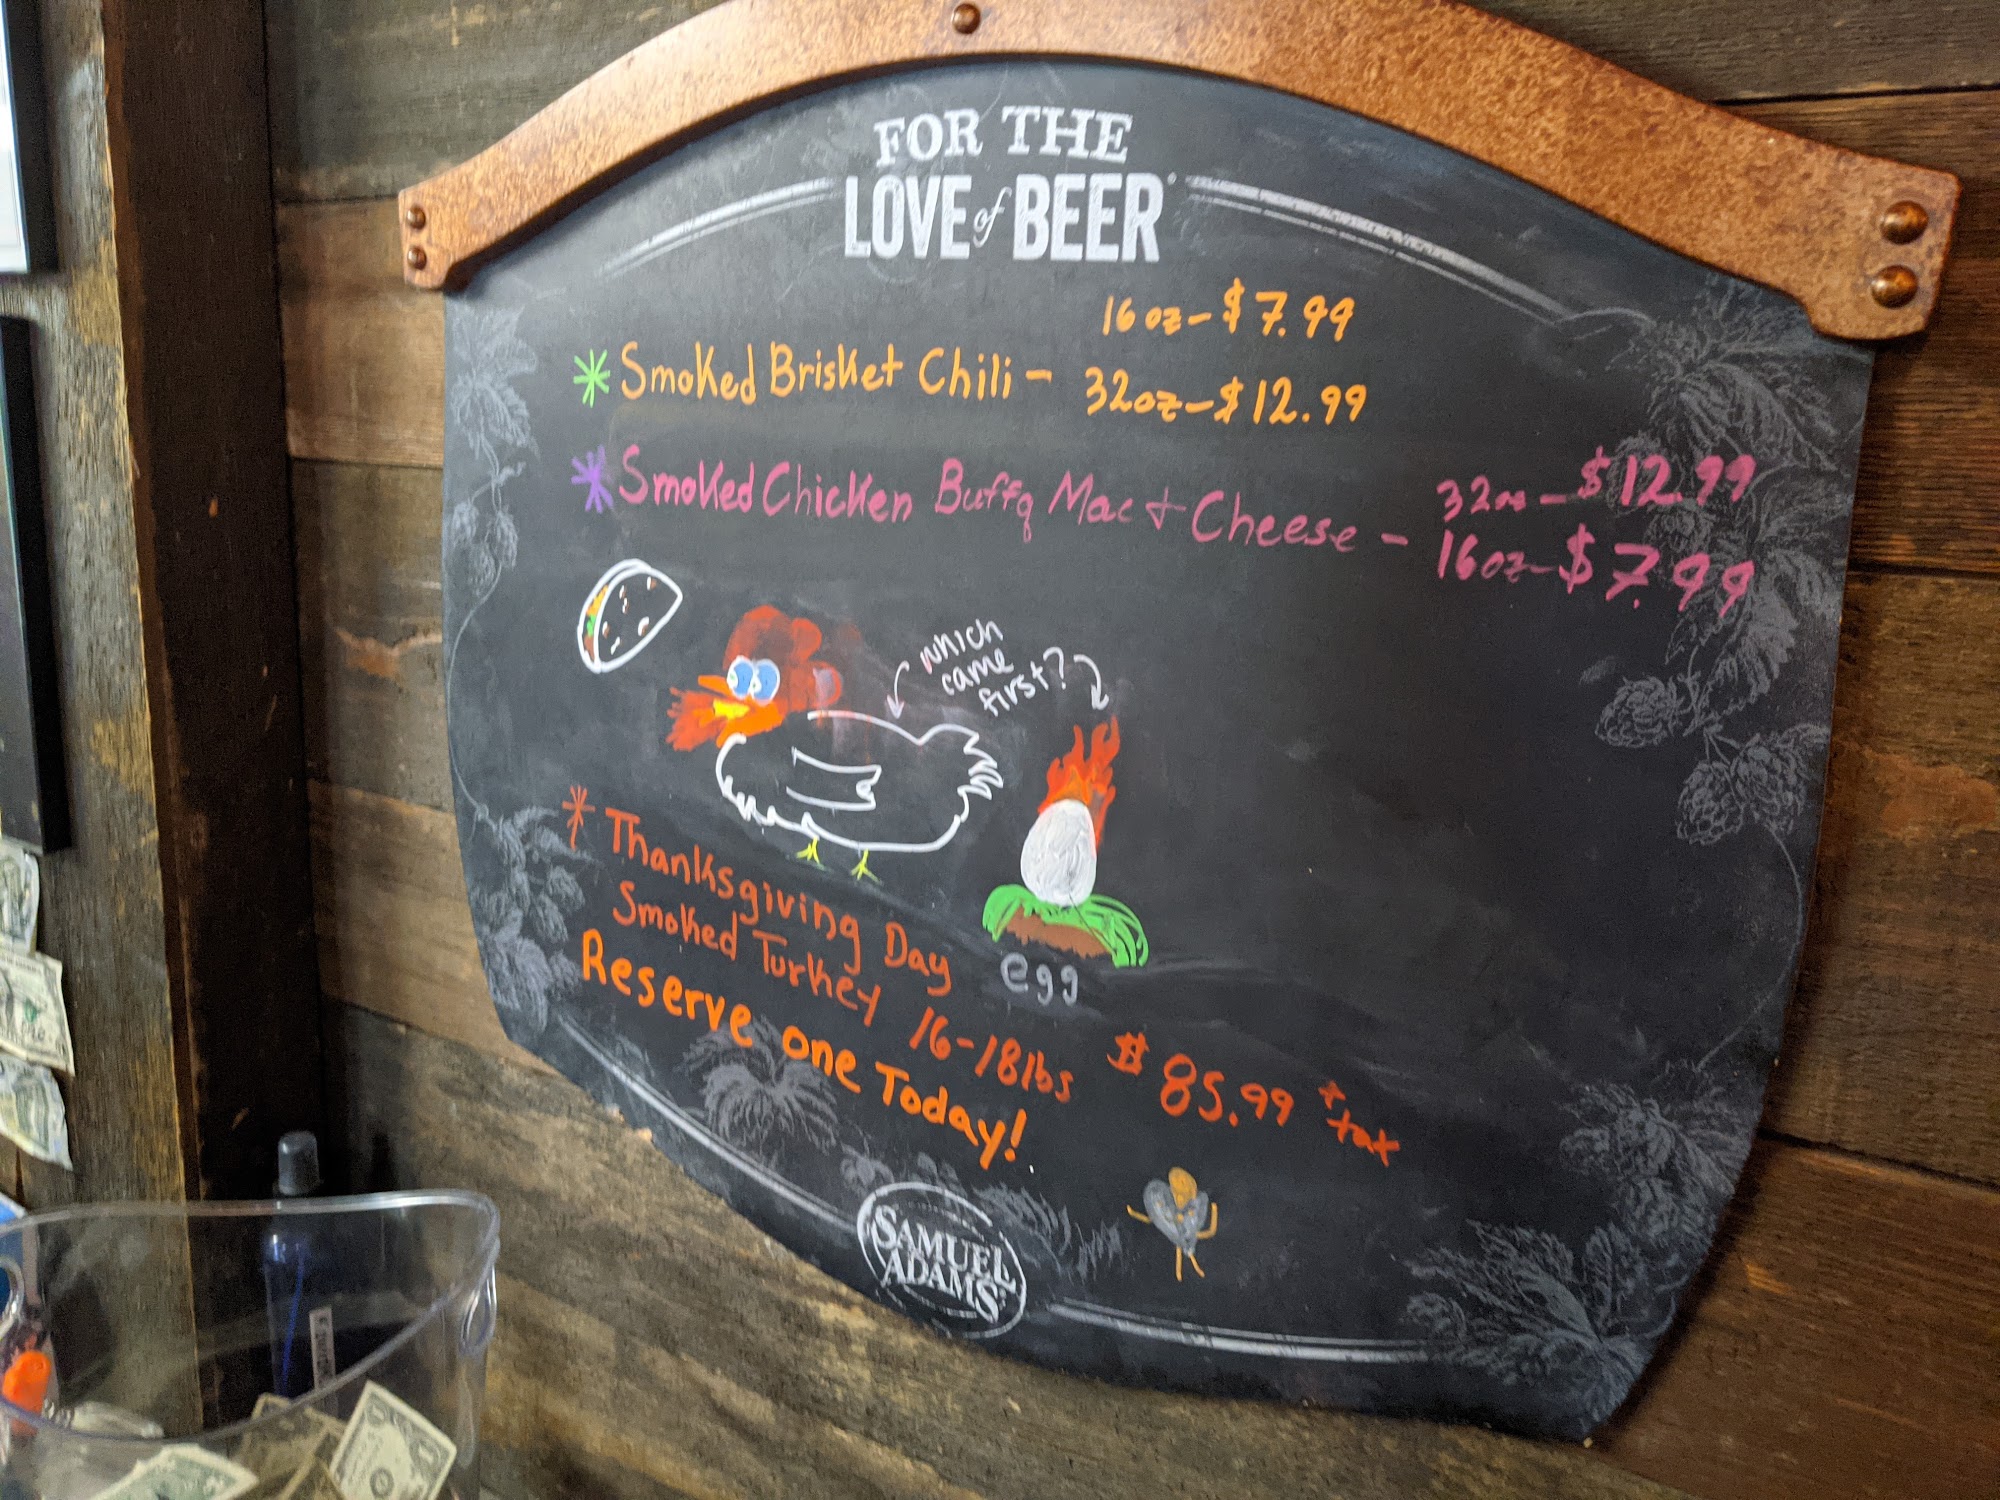 FOR THE
LOVE of BEER
16 oz - $7.99
* Smoked Brisket Chili - 32oz - $12.99
* Smoked Chicken Buffq Mac + Cheese - 32oz - $12.99
16oz - $7.99
which
came
first?
* Thanksgiving Day
Smoked Turkey 16-18lbs $85.99 + tax
Reserve one Today!
egg
SAMUEL
ADAMS